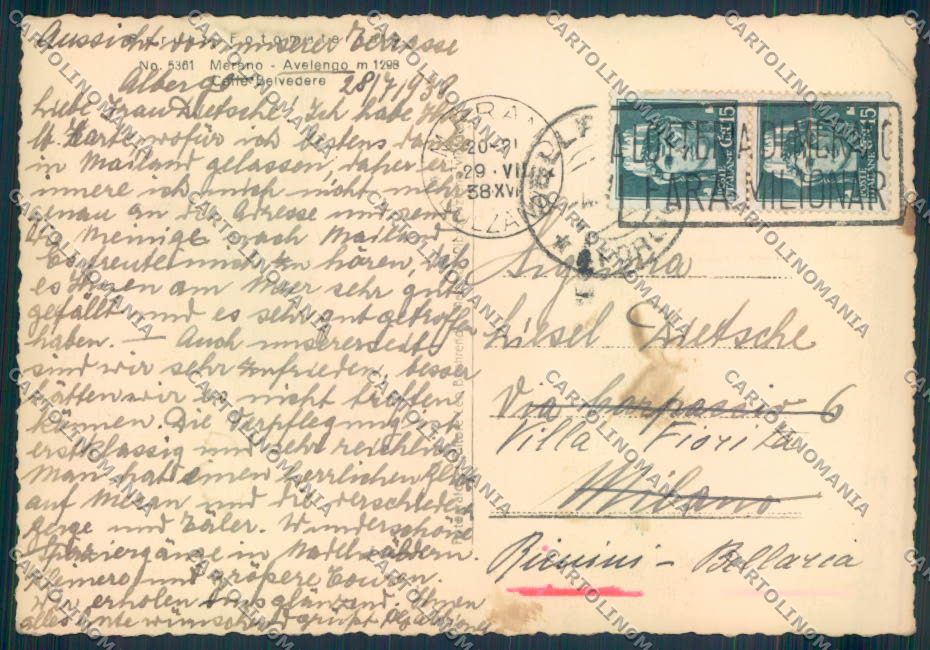 Aussicht von unserer Terrasse
Fotografia
No. 5361 Merano - Avelengo m 1298
Caffè Belvedere
Albergo 28/7 1938
Liebe Frau Dietsche! Ich habe Ihre
lb. Karte, wofür ich bestens danke
in Mailand gelassen, daher er-
innere ich mich nicht mehr
genau an die Adresse und sende
die Meinige nach Mailand.
Es freute mich zu hören, daß
es Ihnen am Meer sehr gut
gefällt und es sehr gut getroffen
haben. — Auch unsererseits
sind wir sehr zufrieden, besser
hätten wir es nicht treffen
können. Die Verpflegung ist
erstklassig und sehr reichlich.
Man hat einen herrlichen Blick
auf Meran und die verschiedenen
Berge und Täler. Wunderschöne
Spaziergänge in Nadelwäldern.
kleinere und größere Touren.
Wir erholen uns glänzend. Ihnen
alles Gute wünschend grüßt
MERANO
20-21
29 VII
38 XVI
BOLZANO
POSTE ITALIANE Cent 15
POSTE ITALIANE Cent 15
Signora
Liesel Dietsche
Via 6
Villa Fiorita
Milano
Rimini - Bellaria
CARTOLINOMANIA